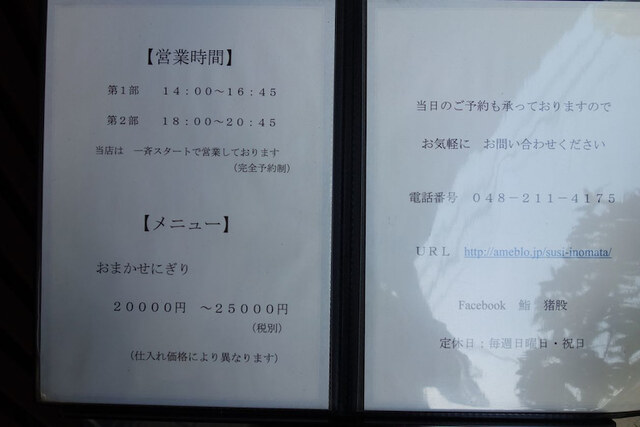 【営業時間】
第1部 14：00～16：45
第2部 18：00～20：45
当店は 一斉スタートで営業しております
（完全予約制）
【メニュー】
おまかせにぎり
20000円 ～25000円
（税別）
（仕入れ価格により異なります）
当日のご予約も承っておりますので
お気軽に お問い合わせください
電話番号 048－211－4175
URL http://ameblo.jp/susi-inomata/
Facebook 鮨 猪股
定休日：毎週日曜日・祝日